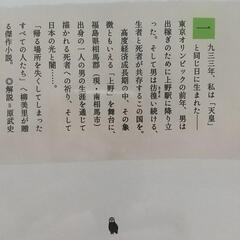 一九三三年、私は「天皇」
と同じ日に生まれた――
東京オリンピックの前年、男は
出稼ぎのために上野駅に降り立
った。そして男は彷徨い続ける、
生者と死者が共存するこの国を。
高度経済成長期の中、その象
徴ともいえる「上野」を舞台に、
福島県相馬郡（現・南相馬市）
出身の一人の男の生涯を通じて
描かれる死者への祈り、そして
日本の光と闇……。
「帰る場所を失くしてしまった
すべての人たち」へ柳美里が贈
る傑作小説。◎解説＝原武史